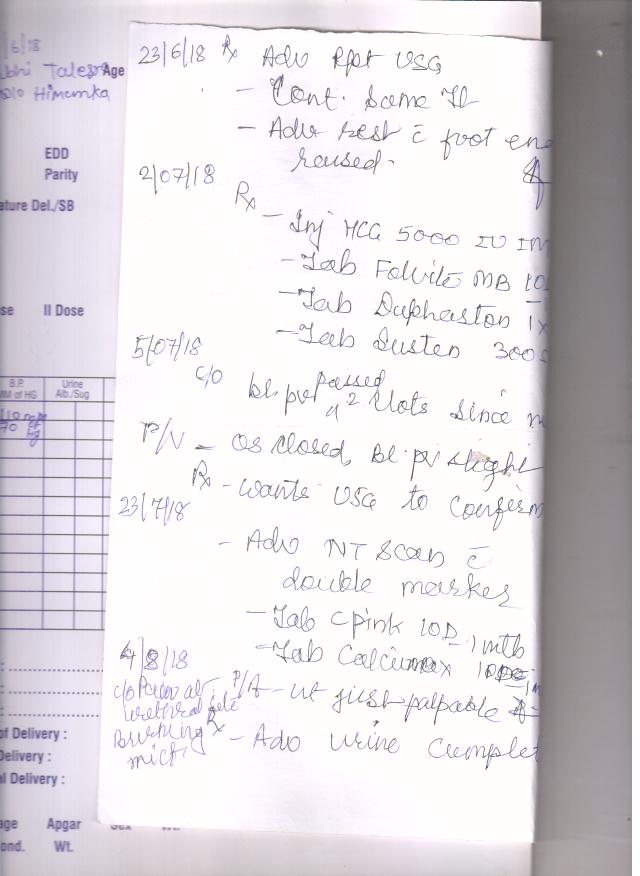 /6/18
bhi Talesra Age
Himemka
EDD
Parity
ature Del./SB
se II Dose
B.P. Urine
MM of HG Alb./Sug
110
70 of
Hg
of Delivery :
Delivery :
l Delivery :
age Apgar
ond. Wt.
23/6/18 Rx Adv Rpt USG
- Cont. Same
- Adv rest c̄ foot en
raised.
2/07/18
Rx
- Inj HCG 5000 IU IM
- Tab Folvite MB 10
- Tab Duphaston 1x
- Tab Susten 300
5/07/18
c/o bl. pv passed 2 clots since
P/V - os closed, bl pv slight
Rx - wants USG to confirm
23/7/18
- Adv NT scan c̄
double marker
- Tab Cpink 10D - 1 mth
- Tab Calcimax 1
4/8/18
c/o Pain at P/A - ut just palpable
urethral site
Burning Rx - Adv urine complet
mict